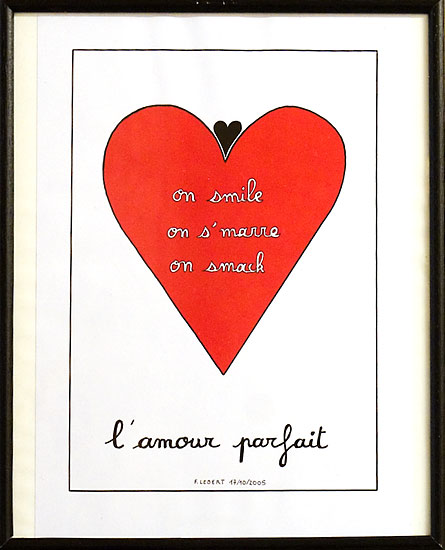 on smile
on s'marre
on smack
l'amour parfait
F. LEBERT 17/10/2005